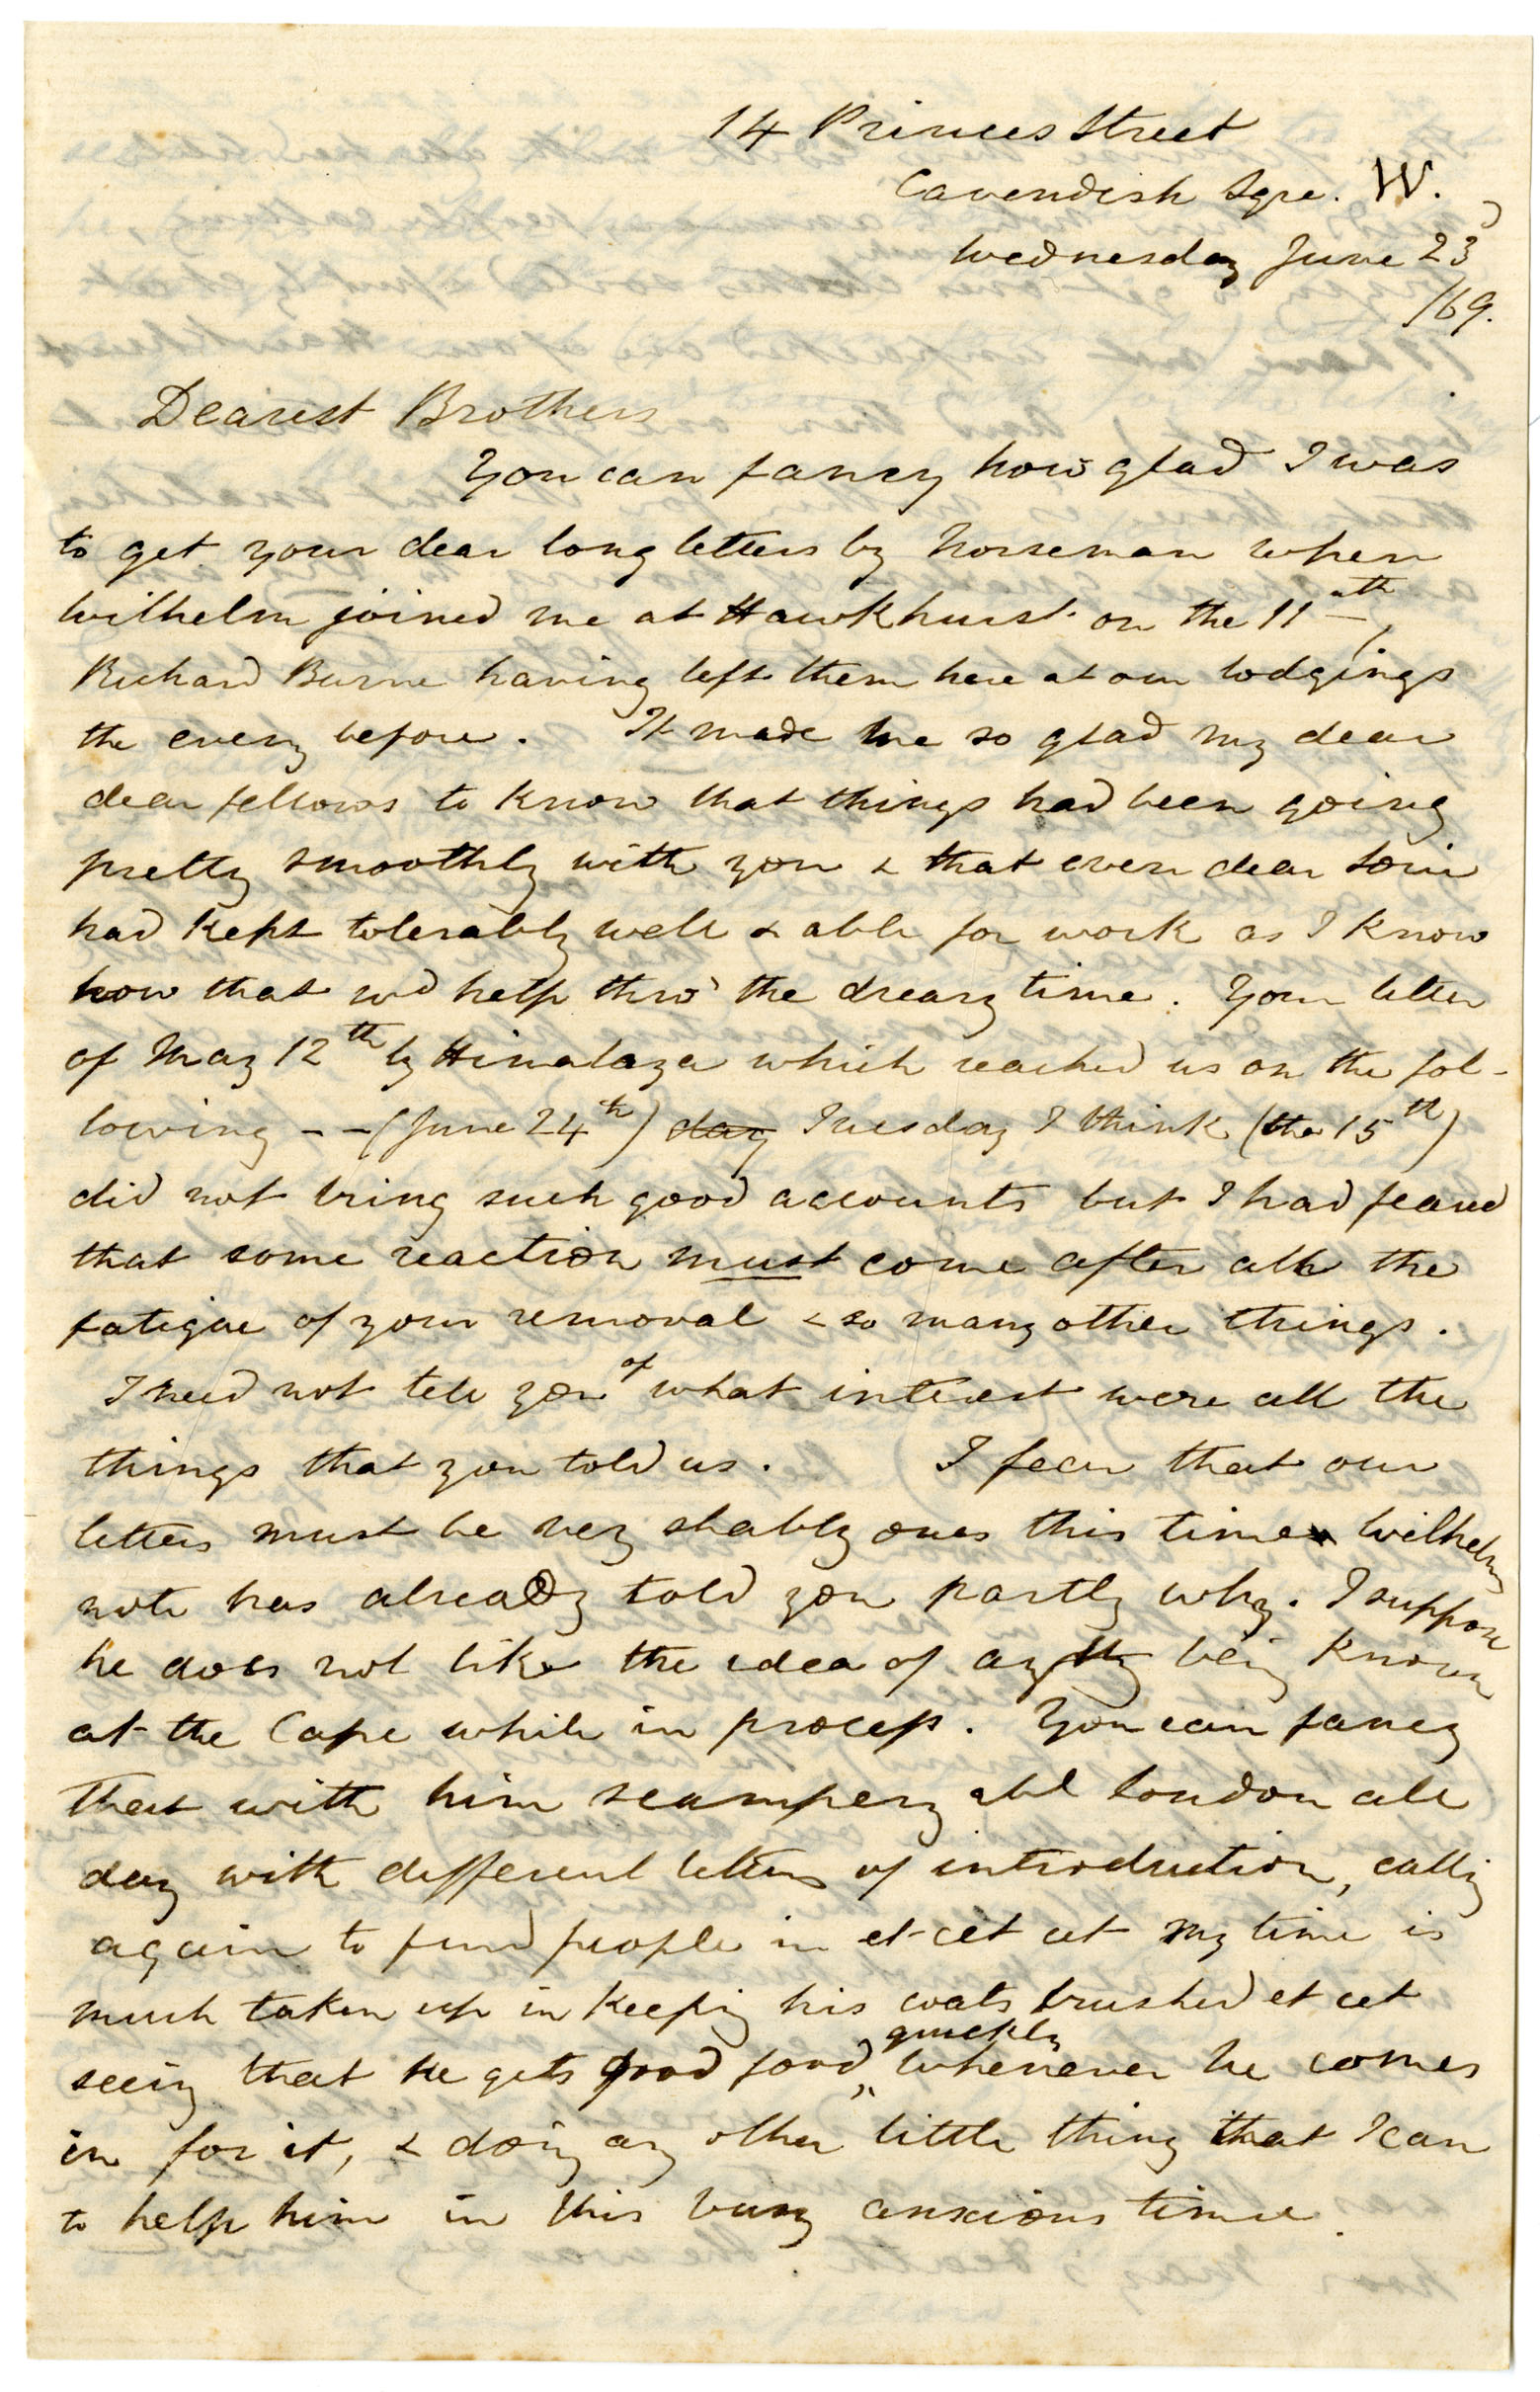 14 Princes Street
Cavendish Sqre. W.
Wednesday June 23
/69.
Dearest Brothers
You can fancy how glad I was
to get your dear long letters by Norseman when
Wilhelm joined me at Hawkhurst on the 11th,
Richard Burne having left them here at our lodgings
the eveng before. It made me so glad my dear
dear fellows to know that things had been going
pretty smoothly with you & that even dear
had kept tolerably well & able for work as I know
how that wd help thro' the dreary time. Your letter
of May 12th by Himalaya which reached us on the fol-
lowing -- (June 24th) day Tuesday I think (the 15th)
did not bring such good accounts but I had feared
that some reaction must come after all the
fatigue of your removal & so many other things.
I need not tell you of what interest were all the
things that you told us. I fear that our
letters must be very shabby ones this time Wilhelms
note has already told you partly why. I suppose
he does not like the idea of anythg being known
at the Cape while in process. You can fancy
that with him scamperg abt London all
day with different letters of introduction, callg
again to find people in et cet cet my time is
much taken up in keepig his coats brushed et cet
seeig that he gets good food, quickly whenever he comes
in for it, & doig any other little thing that I can
to help him in this busy anxious time.